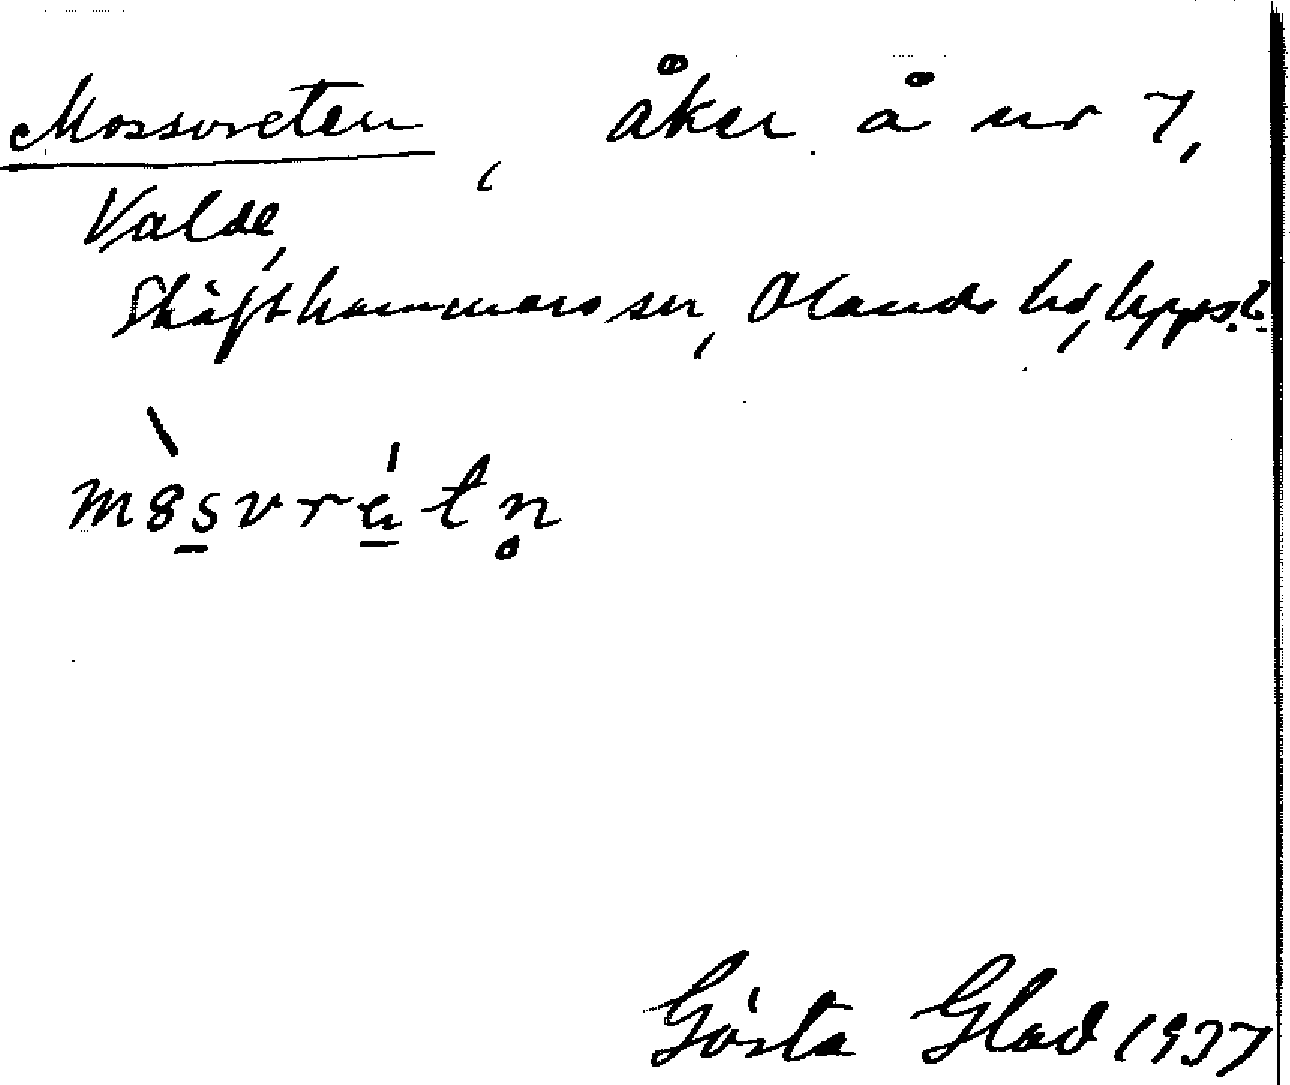 Mossvreten, åker å nr 7,
Valde,
Skäfthammars sn, Olands hd, Upps. l.
mòsvrétn̥
Gösta Glad 1937